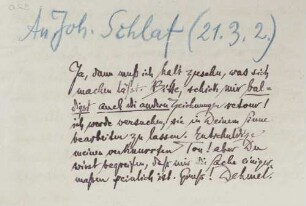 An Joh. Schlaf (21.3.2.)
Ja, dann muß ich halt zusehn, was sich
machen läßt. Bitte, schick mir bal-
digst auch die andren Zeichnungen retour!
ich werde versuchen, sie in Deinem Sinne
bearbeiten zu lassen. Entschuldige
meinen verknurrten Ton! aber Du
wirst begreifen, daß mir die Sache einiger-
maßen peinlich ist. Gruß! Dehmel.